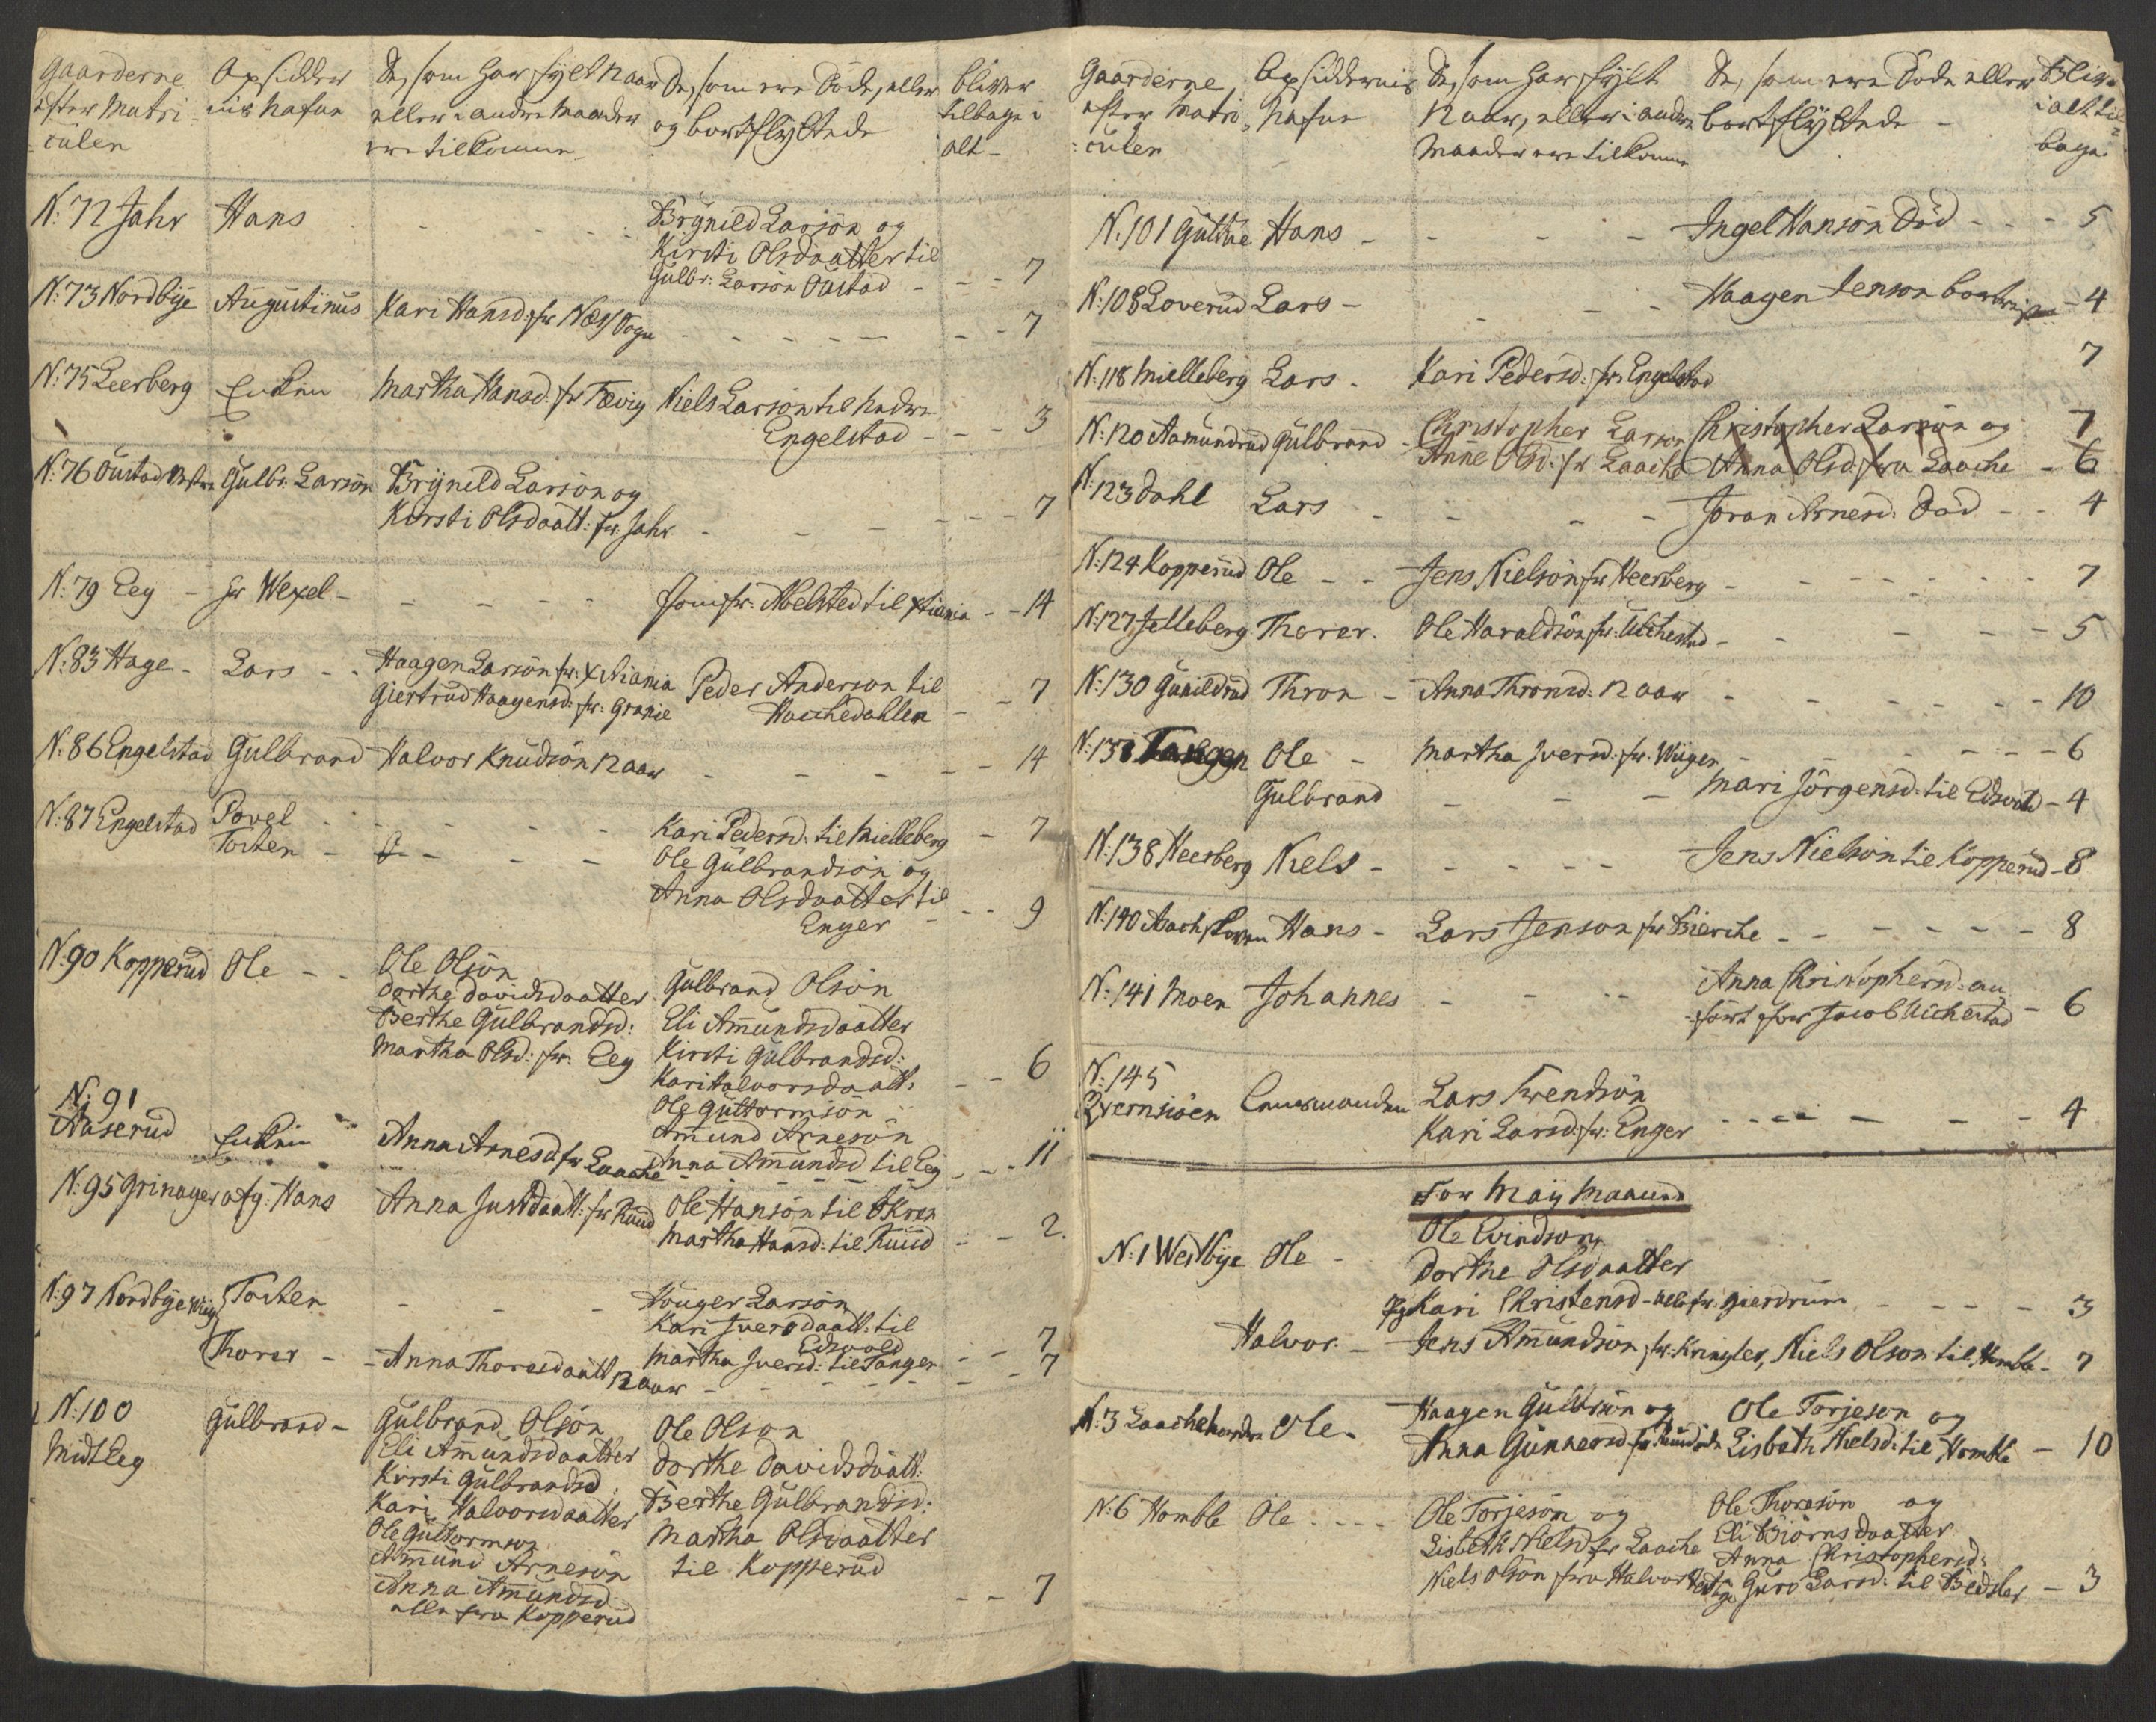 Gaarderne
efter Matri-
culen
Opsidder
nis Nafne
De, som har fylt 12 aar
eller i andre Maader
ere tilkomne
De, som ere Döde, eller
og bortflÿttede
bliver
tilbage i
alt
N: 72 Jahr Hans
Brÿnild Larsön og
Kirsti Olsdaatter til
Gulbr: Larsön Oustad - - 7
N: 73 Nordbÿe Augustinus Kari Hansd: fr Næs Sogn - - 7
N: 75 Leerberg Enken Martha Hansd: fr Tævig Niels Larson til
Engelstad - - 3
N: 76 Oustad Gulbr. Larsön Brÿnild Larsön og
Kirsti Olsdaatt: fr: Jahr - - 7
N: 79 Eeg - Hr Wexel - Jomfr: Abelsted til Xtiania - - 14
N: 83 Hage - Lars - - Haagen Larsön fr: Xstiania
Giertrud Haagensd: fr: Granie
Peder Anderson til
Hachedahlen - - 7
N: 86 Engelstad Gulbrand Halvor Knudsön 12 aar - - 14
N: 87 Engelstad Povel - - Kari Pedersd: til Mielleberg - 7
Tosten - - Ole Gulbrandsön og
Anna Olsdaatter til
Enger - - 9
N: 90 Kopperud Ole - -
Ole Olsön
Dorthe Davidsdaatter
Berthe Gulbrandsd:
Martha Olsd: fr: Eeg
Gulbrand Olsön
Eli Amundsdaatter
Kirsti Gulbrandsd:
Kari Halvorsdaatt: - - 6
Ole Guttormsön
Amund Arnesön
Anna Amundsd til Eeg - - 11
N: 91
Aaserud Enken Anna Arnesd fr Laache
N: 95 Grinager Hans Anna Justdaatt: fr Ruud
Ole Hansön til Økren
Martha Hansd: til Ruud - - 2.
N: 97 Nordbÿe Tosten
Houger Larsön
Kari Iversdaatt: til
Edsvold
Martha Iversd: til Tangen - - 7
Thorer - - Anna Thoresdaatt 12 aar - - 7
N: 100
Midt Eeg
Gulbrand -
Gulbrand Olsön
Eli Amundsdaatter
Kirsti Gulbrandsd
Kari Halvorsdaatter
Ole Guttormson
Amund Arnesön
Anna Amundsd
alle fra Kopperud
Ole Olson
Dorthe Davidsdaatt:
Berthe Gulbrandsd:
Martha Olsdaatter
til Kopperud
- - 7
Gaarderne
efter Matri-
culen
Opsiddernis
Nafne
De, som har fÿlt
12 aar, eller i andre
Maader ere tilkomne
De, som ere Döde eller
bortflÿttede -
Bliver
i alt til
bage.
N. 101 Guttue Hans - - - Ingel Hansön Död - - - 5
N: 108 Loverud Lars - - Haagen Jenson - 4
N: 118 Mielleberg Lars - Kari Pedersd: fr: Engelstad 7
N: 120 Aamundrud Gulbrand - Christopher Larson
Anne Olsd: fr Laache
Christopher Larsön og 7
Anna Olsd: fra Laache - 6
N: 123 Dahl Lars - - - Joran Arnesd. Död - - 4
N: 124 Kopperud Ole - - Jens Nielsön fr Heesberg - - - 7
N: 127 Jelleberg Thorer. Ole Haraldsön fr: Uchestad - - - 5
N: 130 Guaildrud Thron - Anna Thronsd: 12 aar - - - 10
N: 138 Tangen Ole - Martha Iversd: fr: Wiigen - - - 6
Gulbrand - - - Mari Jörgensd. til Edsvold - 4
N: 138 Heesberg Niels - - - Jens Nielsön til Kopperud - 8
N: 140 Hans - Lars Jenson fr Bierche - - - 8
N: 141 Moen Johannes - - Anna Christophersd: an
fört for Jacob Uchestad - 6
N: 145
Qvernsiöen Lars Svendsön
Kari Larsd: fr: Enger - - - 4
For Maÿ Maaned
N: 1 Westbÿe Ole -
Ole Evindsön
Dorthe Olsdaatter
Kari Christensd - alle fr. Gierdrum - - - 3
Halvor. - Jens Amundsön fr: Kringler, Niels Olson til Homble - 7
N: 3 Laache Ole -
Haagen Gulbrsön og
Anna Gunnersd fr Ruud
Ole Torjeson og
Lisbeth Nielsd: til Homble - 10
N: 6 Homble Ole - - -
Ole Torjesön og
Lisbeth Nielsd fr Laache
Niels Olsön fra Halvor Westbÿe
Ole Thoresön og
Eli Biörnsdaatter
Anna Christophersd:
Guro Larsd: til Bedsler - 3